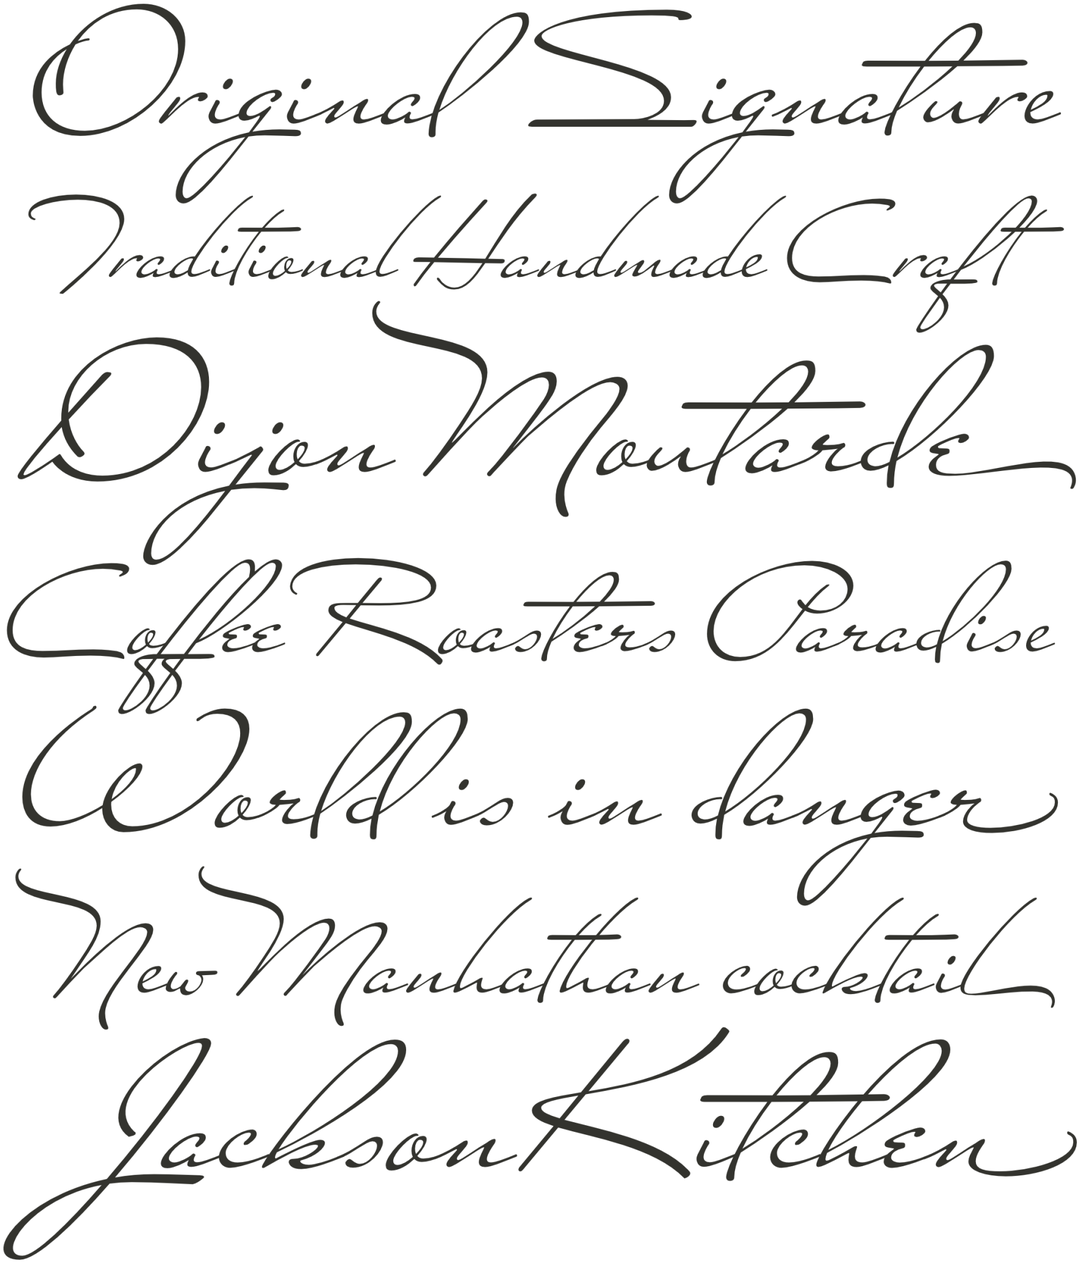 Original Signature
Traditional Handmade Craft
Dijon Moutarde
Coffee Roasters Paradise
World is in danger
New Manhathan cocktail
Jackson Kitchen